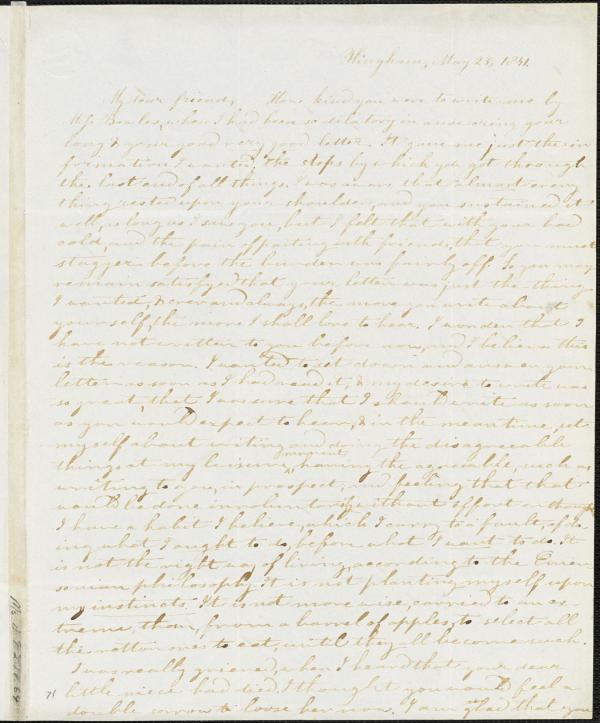 Hingham, May 23, 1841.
My dear friend, How kind you were to write me by
Mr. Bowles, when I had been so dilatory in answering your
long & your good very good letter. It gave me just the in
formation I wanted, the steps by which you got through
the last end of all things. I was aware that almost every
thing rested upon your shoulders, and you sustained it
well, as long as I saw you, but I felt that with your bad
cold, and the pain of parting with friends, that you must
stagger before the burden was fairly off. So you may
remain satisfyed that your letter was just the thing
I wanted, & ever and always, the more you write about
yourself, the more I shall love to hear. I wonder that I
have not written to you before now, and I believe this
is the reason. I wanted to set down and answer your
letter as soon as I had read it, & my desire to write was
so great that I was sure that I should write as soon
as you would expect to hear, & in the meantime, set
myself about writing and doing the disagreeable
things at my leisure moment, having the agreeable, such as
writing to you, in prospect, and feeling that that
would be done involuntarily without effort or thought
I have a habit I believe, which I carry to a fault, of do
ing what I ought to do, before what I want to do. It
is not the right way of living, according to the Emer
sonian philosophy. It is not planting myself upon
my instincts. It is not more wise, carried to an ex-
treme, than, from a barrel of apples, to select all
the rotten ones to eat, until they all become such.
I was really grieved, when I heard that your dear
little niece had died. I thought you would feel a
double sorrow to loose her now. I am glad that you